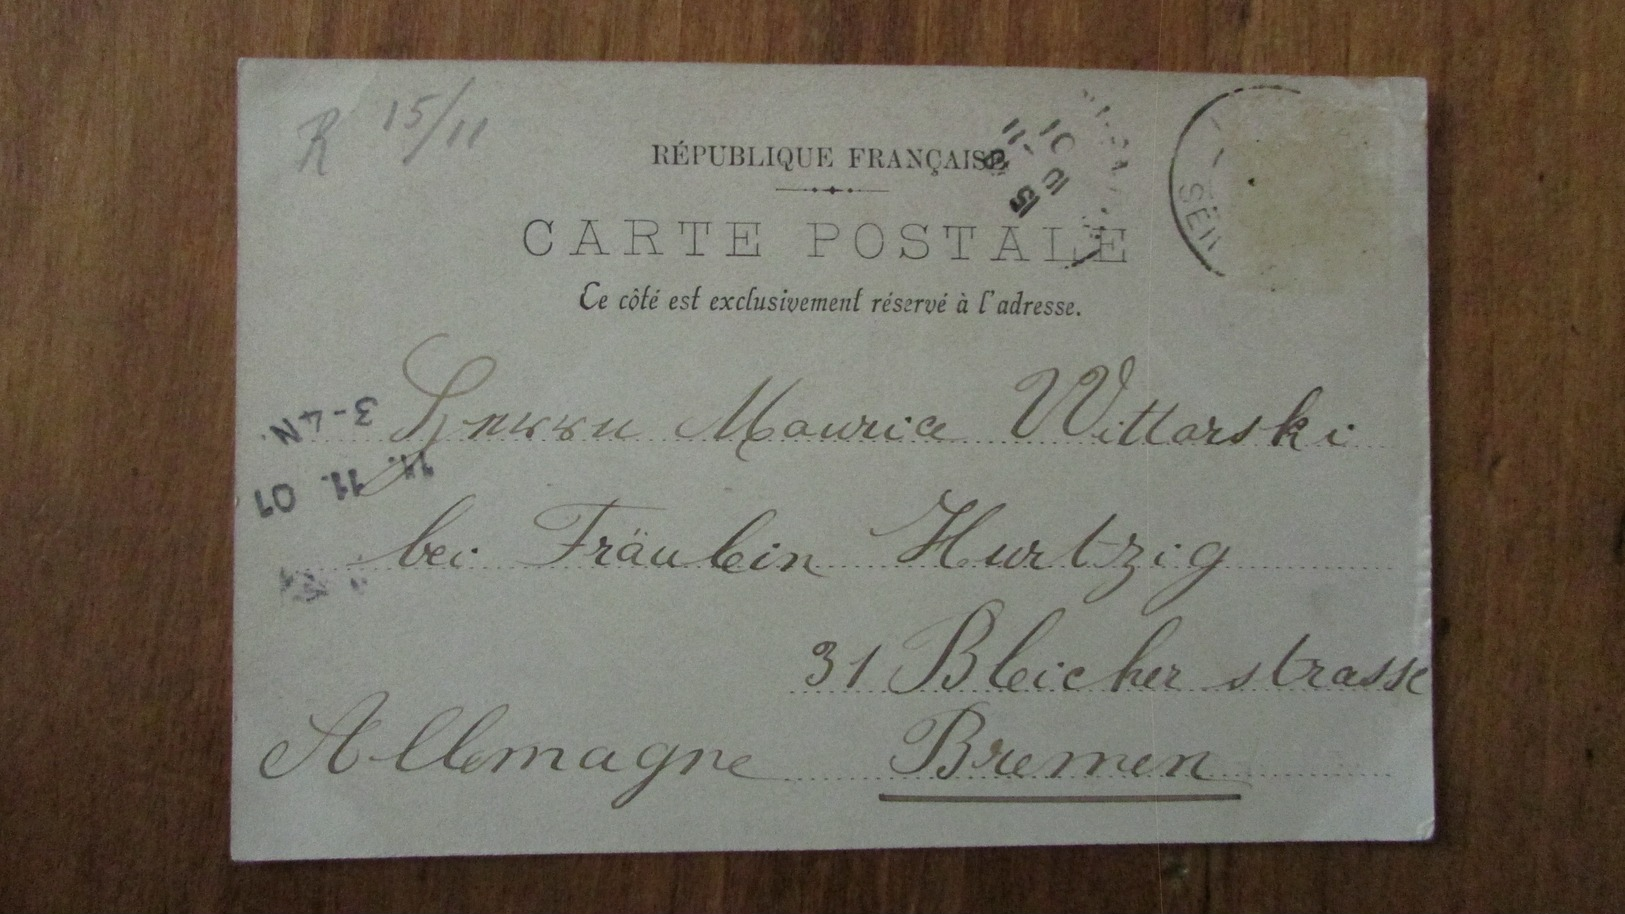 R 15/11
RÉPUBLIQUE FRANÇAISE
CARTE POSTALE
Ce côté est exclusivement réservé à l'adresse.
SEIN
3-4N.
11. 11. 01
Herrn Maurice Wittorski
bei Fräulein Hurtzig
31 Bleicher strasse
Allemagne Bremen